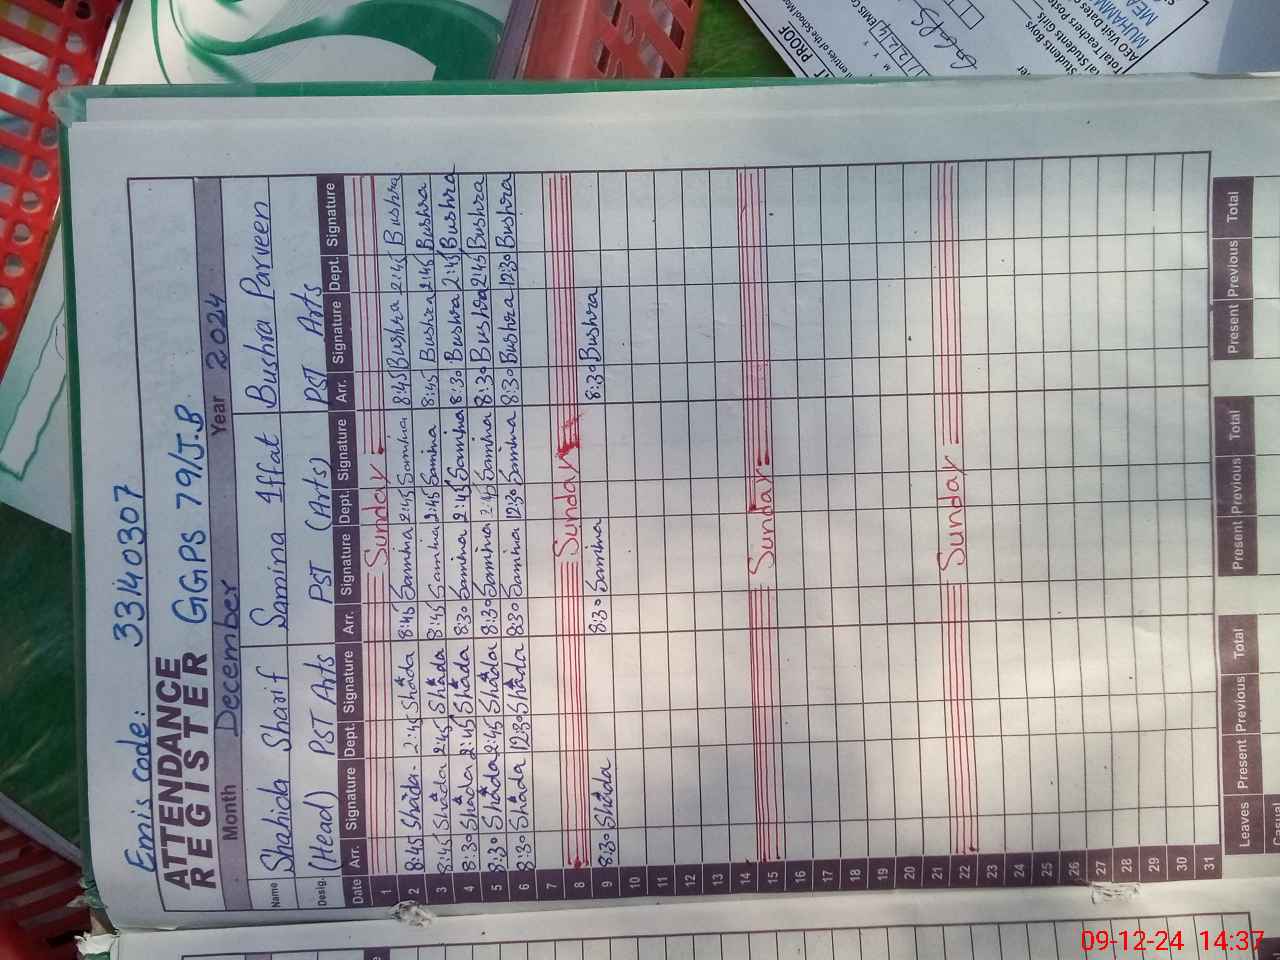 Emis code: 33140307
ATTENDANCE REGISTER GGPS 79/J.B
Month December Year 2024
Name Shahida Sharif Samina Iffat Bushra Parveen
Desig. (Head) PST Arts PST (Arts) PST Arts
Date Arr. Signature Dept. Signature Arr. Signature Dept. Signature Arr. Signature Dept. Signature
1 Sunday
2 8:45 Shada 2:45 Shada 8:45 Samina 2:45 Samina 8:45 Bushra 2:45 Bushra
3 8:45 Shada 2:45 Shada 8:45 Samina 2:45 Samina 8:45 Bushra 2:45 Bushra
4 8:30 Shada 2:45 Shada 8:30 Samina 2:45 Samina 8:30 Bushra 2:45 Bushra
5 8:30 Shada 2:45 Shada 8:30 Samina 2:45 Samina 8:30 Bushra 2:45 Bushra
6 8:30 Shada 12:30 Shada 8:30 Samina 12:30 Samina 8:30 Bushra 12:30 Bushra
7
8 Sunday
9 8:30 Shada 8:30 Samina 8:30 Bushra
10
11
12
13
14
15 Sunday
16
17
18
19
20
21
22 Sunday
23
24
25
26
27
28
29
30
31
Leaves Present Previous Total Present Previous Total Present Previous Total
Casual
PROOF
Students Boys
Total Students Girls
Total Teachers Posted
AEO Visit Dates
MUHAMM
MEA
09-12-24 14:37